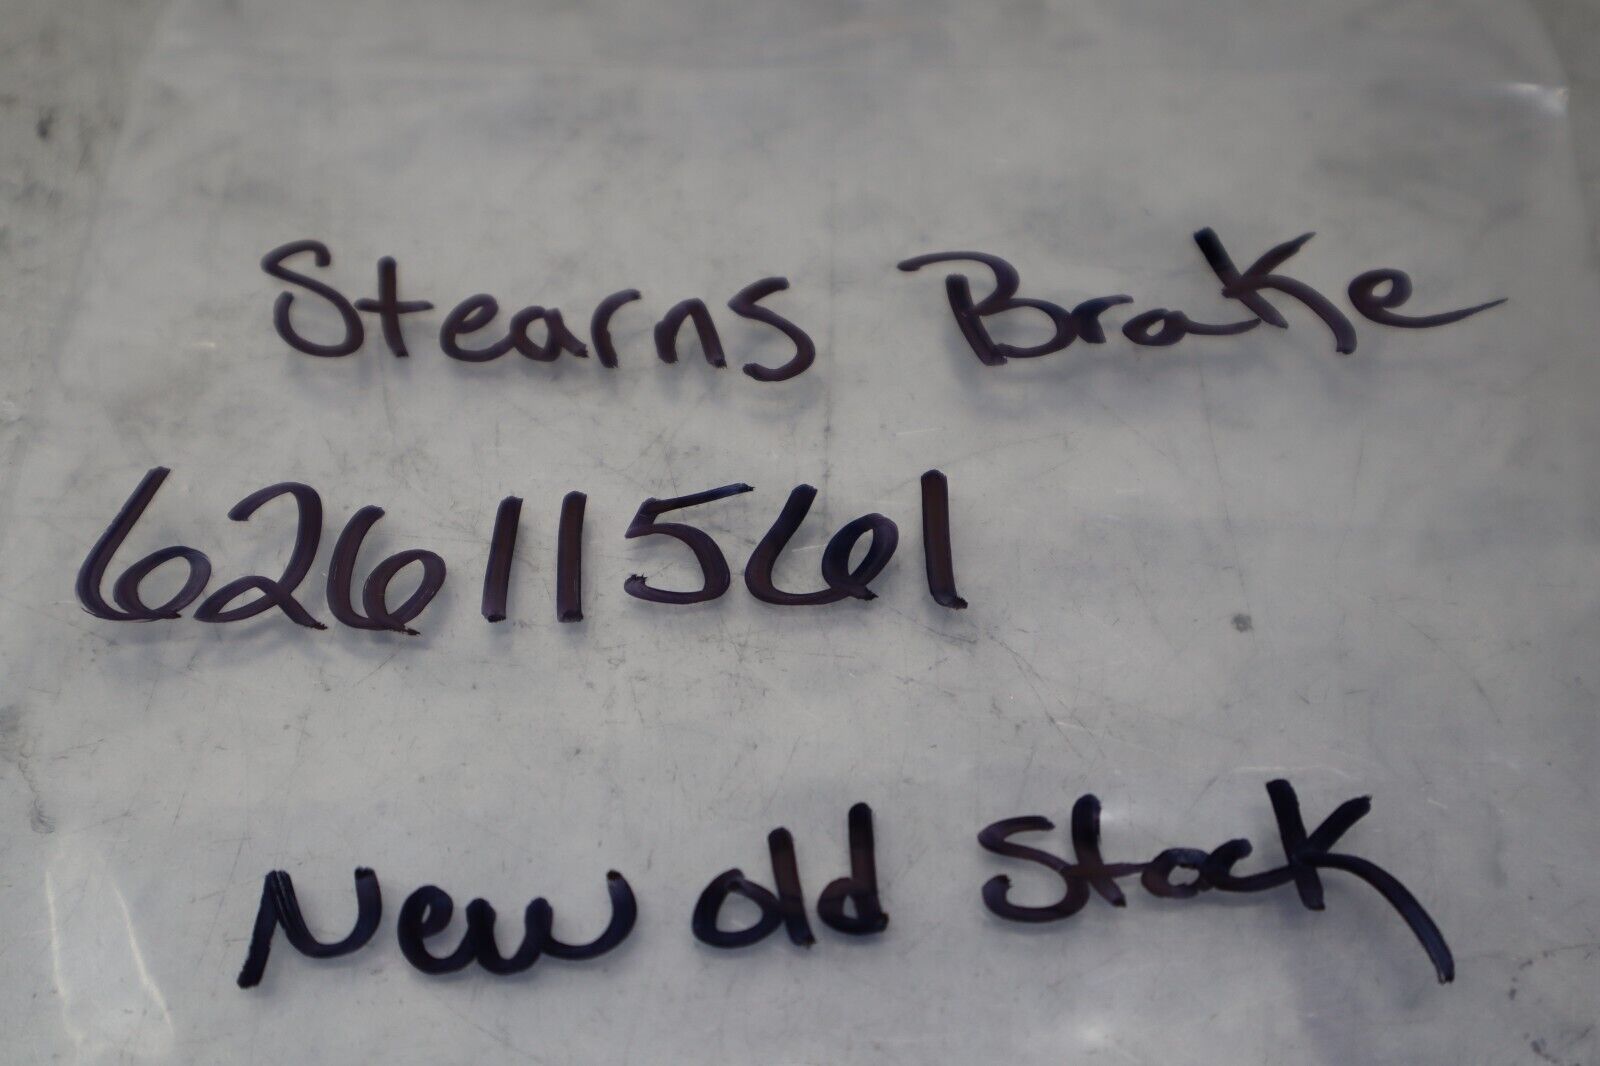 Stearns Brake
62611561
New old Stock